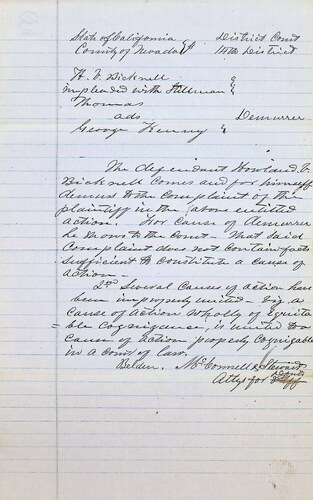 State of California } District Court
County of Nevada } ss 14th District
H. V. Bicknell }
impleaded with Tillman }
Thomas
ads Demurrer
George Kenny }
The defendant Howard V.
Bicknell comes and for himself
demurs to the complaint of the
plaintiff in the above entitled
action. For cause of demurrer
he shows to the Court. That said
Complaint does not contain facts
sufficient to constitute a cause of
action.
2nd Several causes of action have
been improperly united. Viz a
cause of action wholly of equita
= ble cognizance, is united to a
cause of action properly cognizable
in a court of law.
Belden, McConnell & Stewart
Attys for Deft